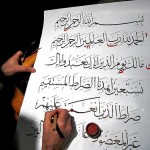 بسم الله الرحمن الرحيم
الحمد لله رب العالمين الرحمن الرحيم
مالك يوم الدين اياك نعبد واياك
نستعين اهدنا الصراط المستقيم
صراط الذين انعمت عليهم
غير المغضوب